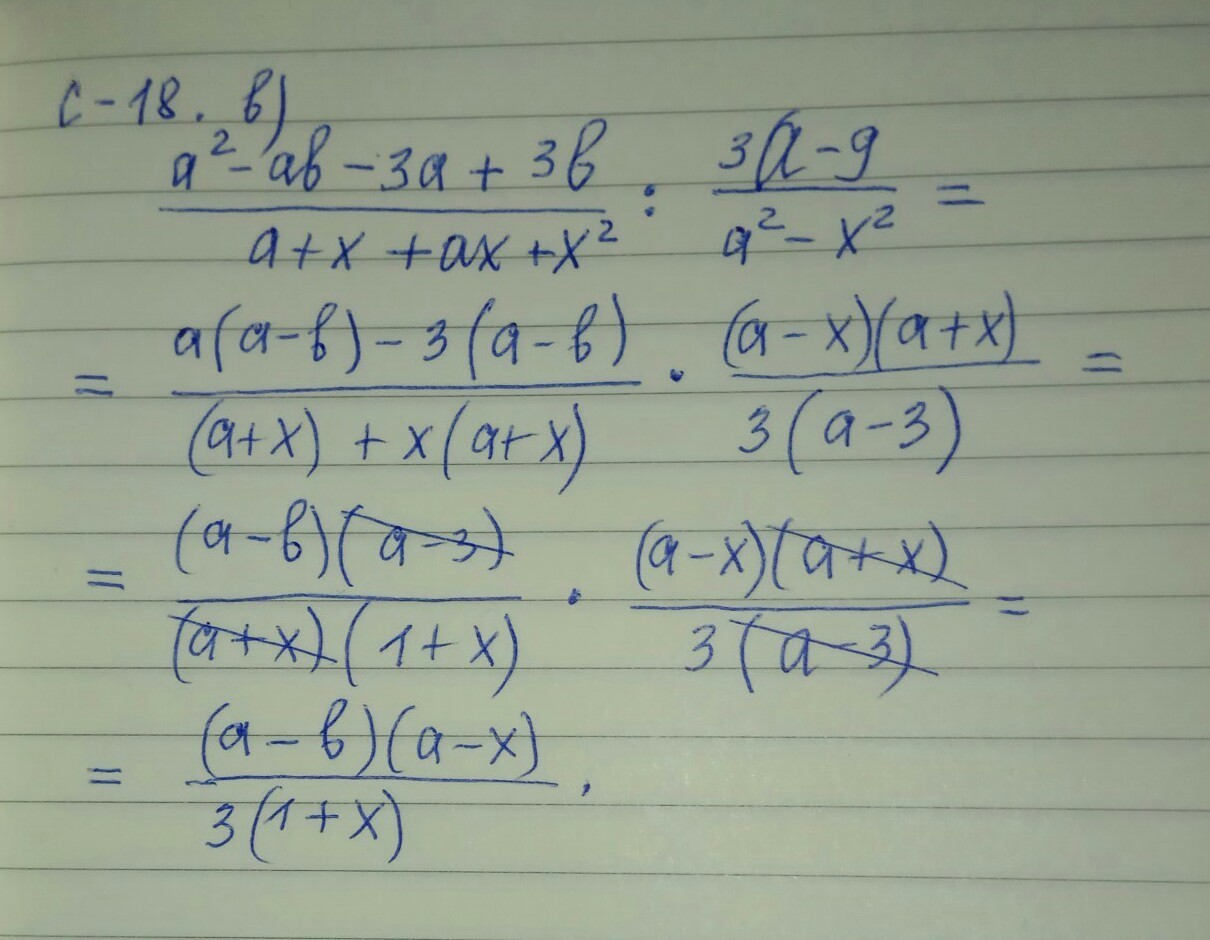 С-18. в)
(a² - ab - 3a + 3b)/(a + x + ax + x²) : (3a - 9)/(a² - x²) =
= (a(a - b) - 3(a - b))/((a + x) + x(a + x)) · ((a - x)(a + x))/(3(a - 3)) =
= ((a - b)(a - 3))/((a + x)(1 + x)) · ((a - x)(a + x))/(3(a - 3)) =
= ((a - b)(a - x))/(3(1 + x)).